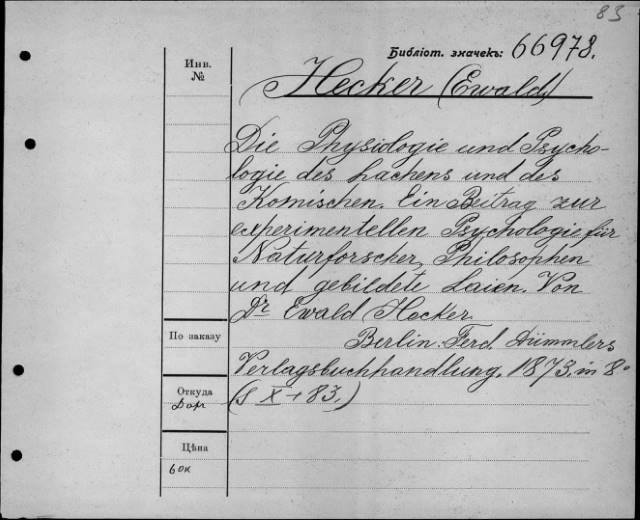 83
Библіот. значекъ: 66978.
Инв.
№
Hecker (Ewald)
Die Physiologie und Psycho-
logie des Lachens und des
Komischen. Ein Beitrag zur
experimentellen Psychologie für
Naturforscher, Philosophen
und gebildete Laien. Von
Dr. Ewald Hecker
По заказу
Berlin. Ferd. Dümmlers
Verlagsbuchhandlung. 1873. in 8°
Откуда
(S X + 83.)
Цѣна
60к